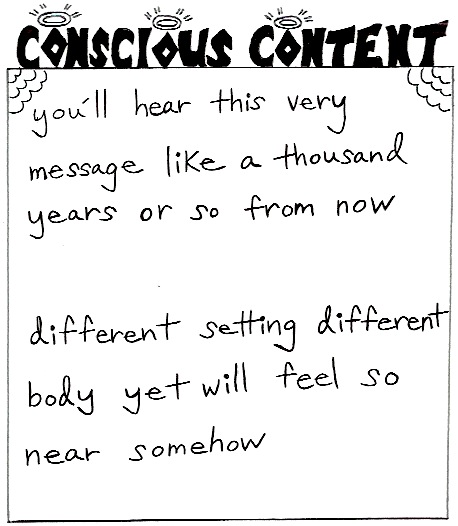 CONSCIOUS CONTENT
you'll hear this very
message like a thousand
years or so from now
different setting different
body yet will feel so
near somehow